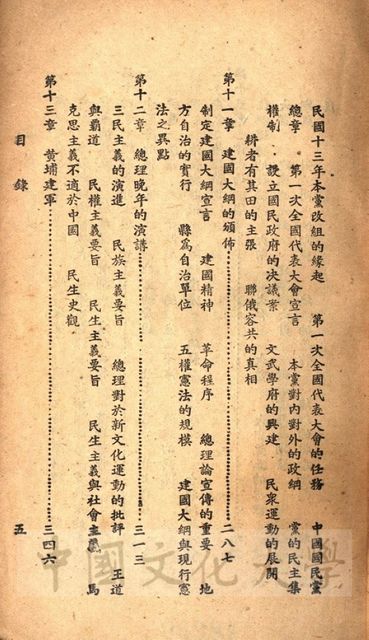 民國十三年本黨改組的緣起　第一次全國代表大會的任務　中國國民黨
總章　第一次全國代表大會宣言　本黨對內對外的政綱　黨的民主集
權制　設立國民政府的決議案　文武學府的興建　民眾運動的展開
耕者有其田的主張　聯俄容共的真相
第十一章　建國大綱的頒佈…………二八七
制定建國大綱宣言　建國精神　革命程序　總理論宣傳的重要　地
方自治的實行　縣為自治單位　五權憲法的規模　建國大綱與現行憲
法之異點
第十二章　總理晚年的演講…………三一三
三民主義的演進　民族主義要旨　總理對於新文化運動的批評　王道
與霸道　民權主義要旨　民生主義要旨　民生主義與社會主義　馬
克思主義不適於中國　民生史觀
第十三章　黃埔建軍…………三四六
目錄　五
中國文化大學